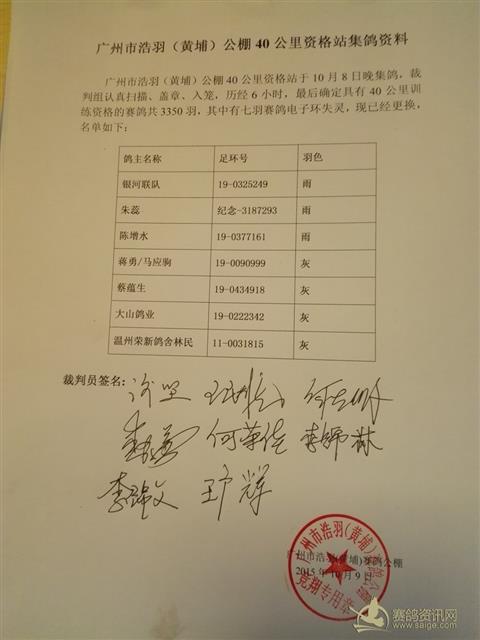 广州市浩羽（黄埔）公棚 40 公里资格站集鸽资料
广州市浩羽（黄埔）公棚 40 公里资格站于 10 月 8 日晚集鸽，裁
判组认真扫描、盖章、入笼，历经 6 小时，最后确定具有 40 公里训
练资格的赛鸽共 3350 羽，其中有七羽赛鸽电子环失灵，现已经更换，
名单如下：
鸽主名称 足环号 羽色
银河联队 19-0325249 雨
朱蕊 纪念-3187293 雨
陈增水 19-0377161 雨
蒋勇/马应驹 19-0090999 灰
蔡蕴生 19-0434918 灰
大山鸽业 19-0222342 灰
温州荣新鸽舍林民 11-0031815 灰
裁判员签名：
何荣佳
李锦文
广州市浩羽(黄埔)赛鸽公棚
2015 年 10 月 9 日
广州市浩羽(黄埔)赛鸽公棚
竞翔专用章
赛鸽资讯网
www.saige.com